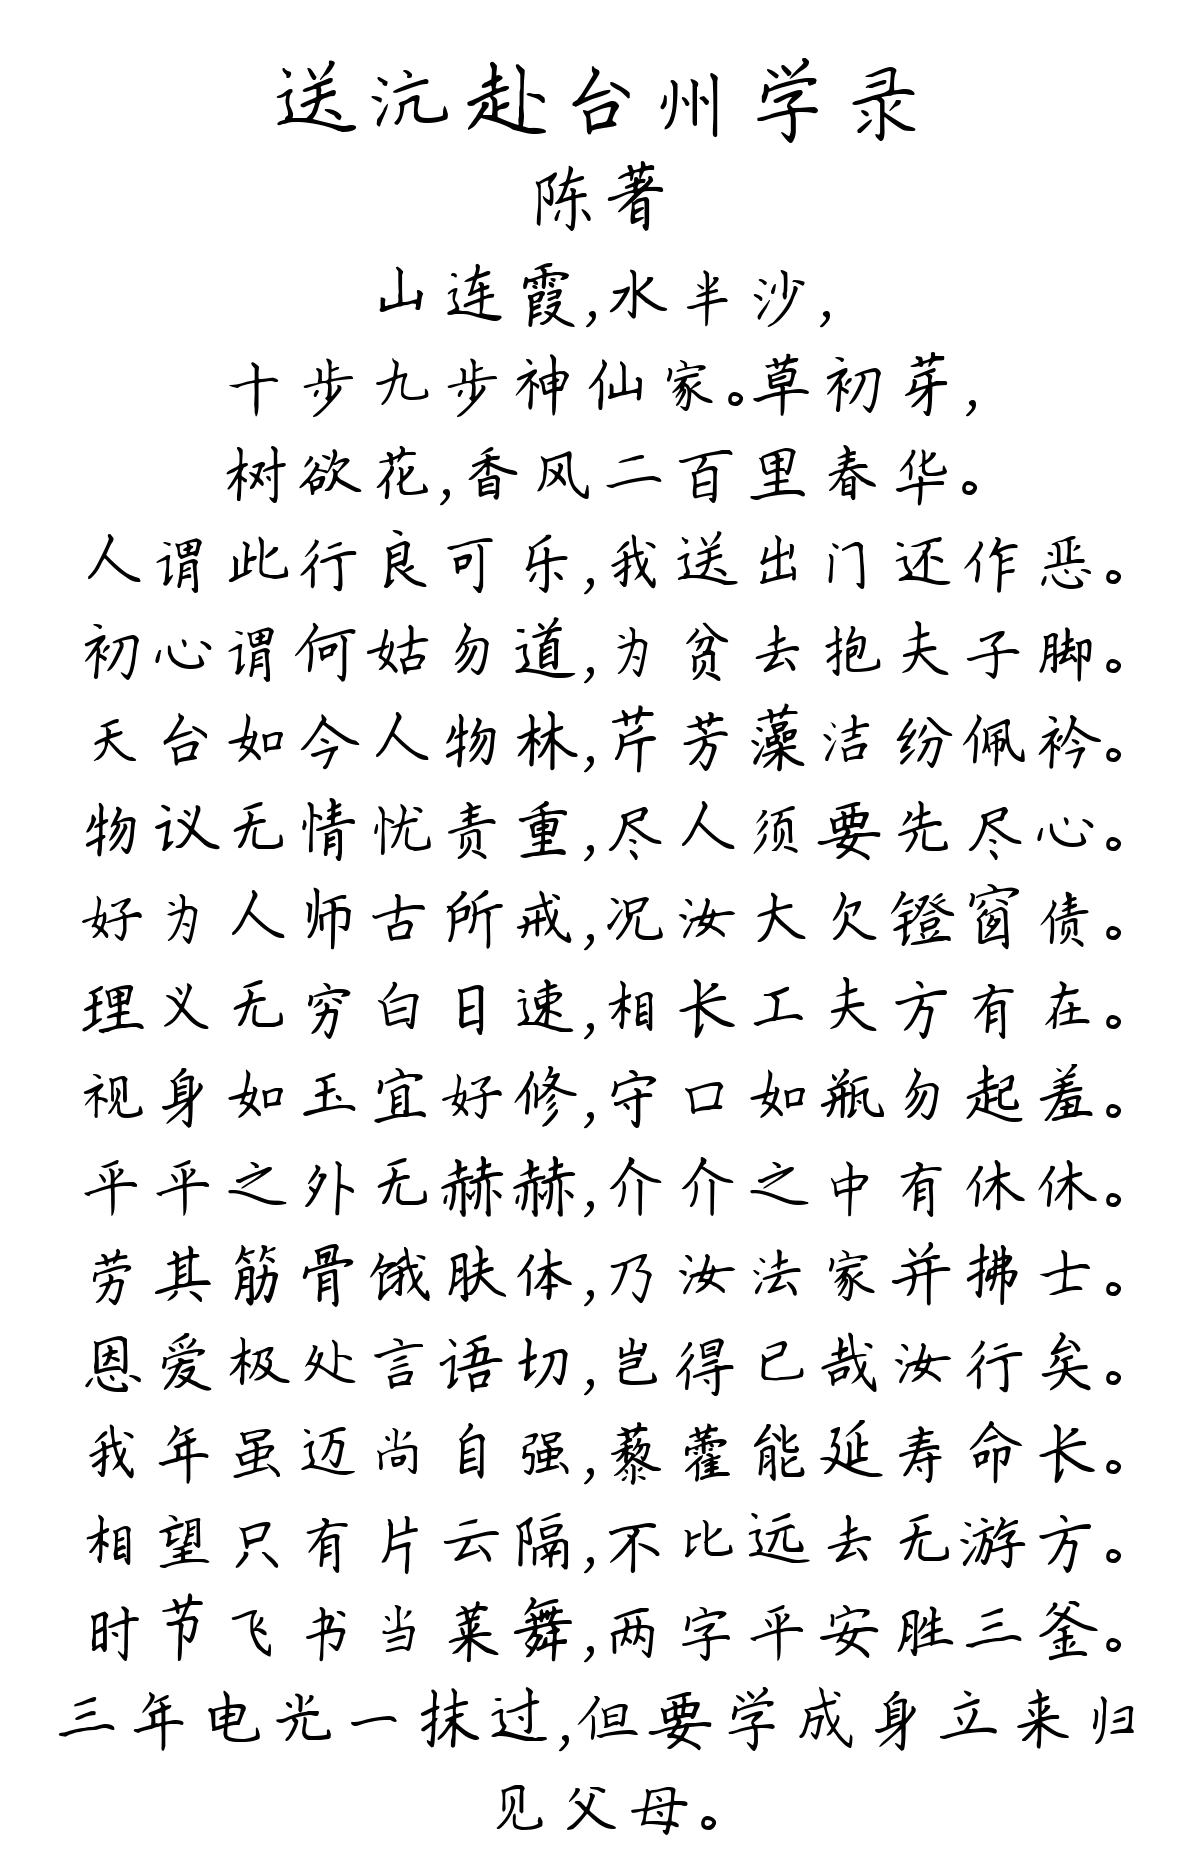 送沆赴台州学录
陈著
山连霞,水半沙,
十步九步神仙家。草初芽,
树欲花,香风二百里春华。
人谓此行良可乐,我送出门还作恶。
初心谓何姑勿道,为贫去抱夫子脚。
天台如今人物林,芹芳藻洁纷佩衿。
物议无情忧责重,尽人须要先尽心。
好为人师古所戒,况汝大欠镫窗债。
理义无穷白日速,相长工夫方有在。
视身如玉宜好修,守口如瓶勿起羞。
平平之外无赫赫,介介之中有休休。
劳其筋骨饿肤体,乃汝法家并拂士。
恩爱极处言语切,岂得已哉汝行矣。
我年虽迈尚自强,藜藿能延寿命长。
相望只有片云隔,不比远去无游方。
时节飞书当莱舞,两字平安胜三釜。
三年电光一抹过,但要学成身立来归
见父母。